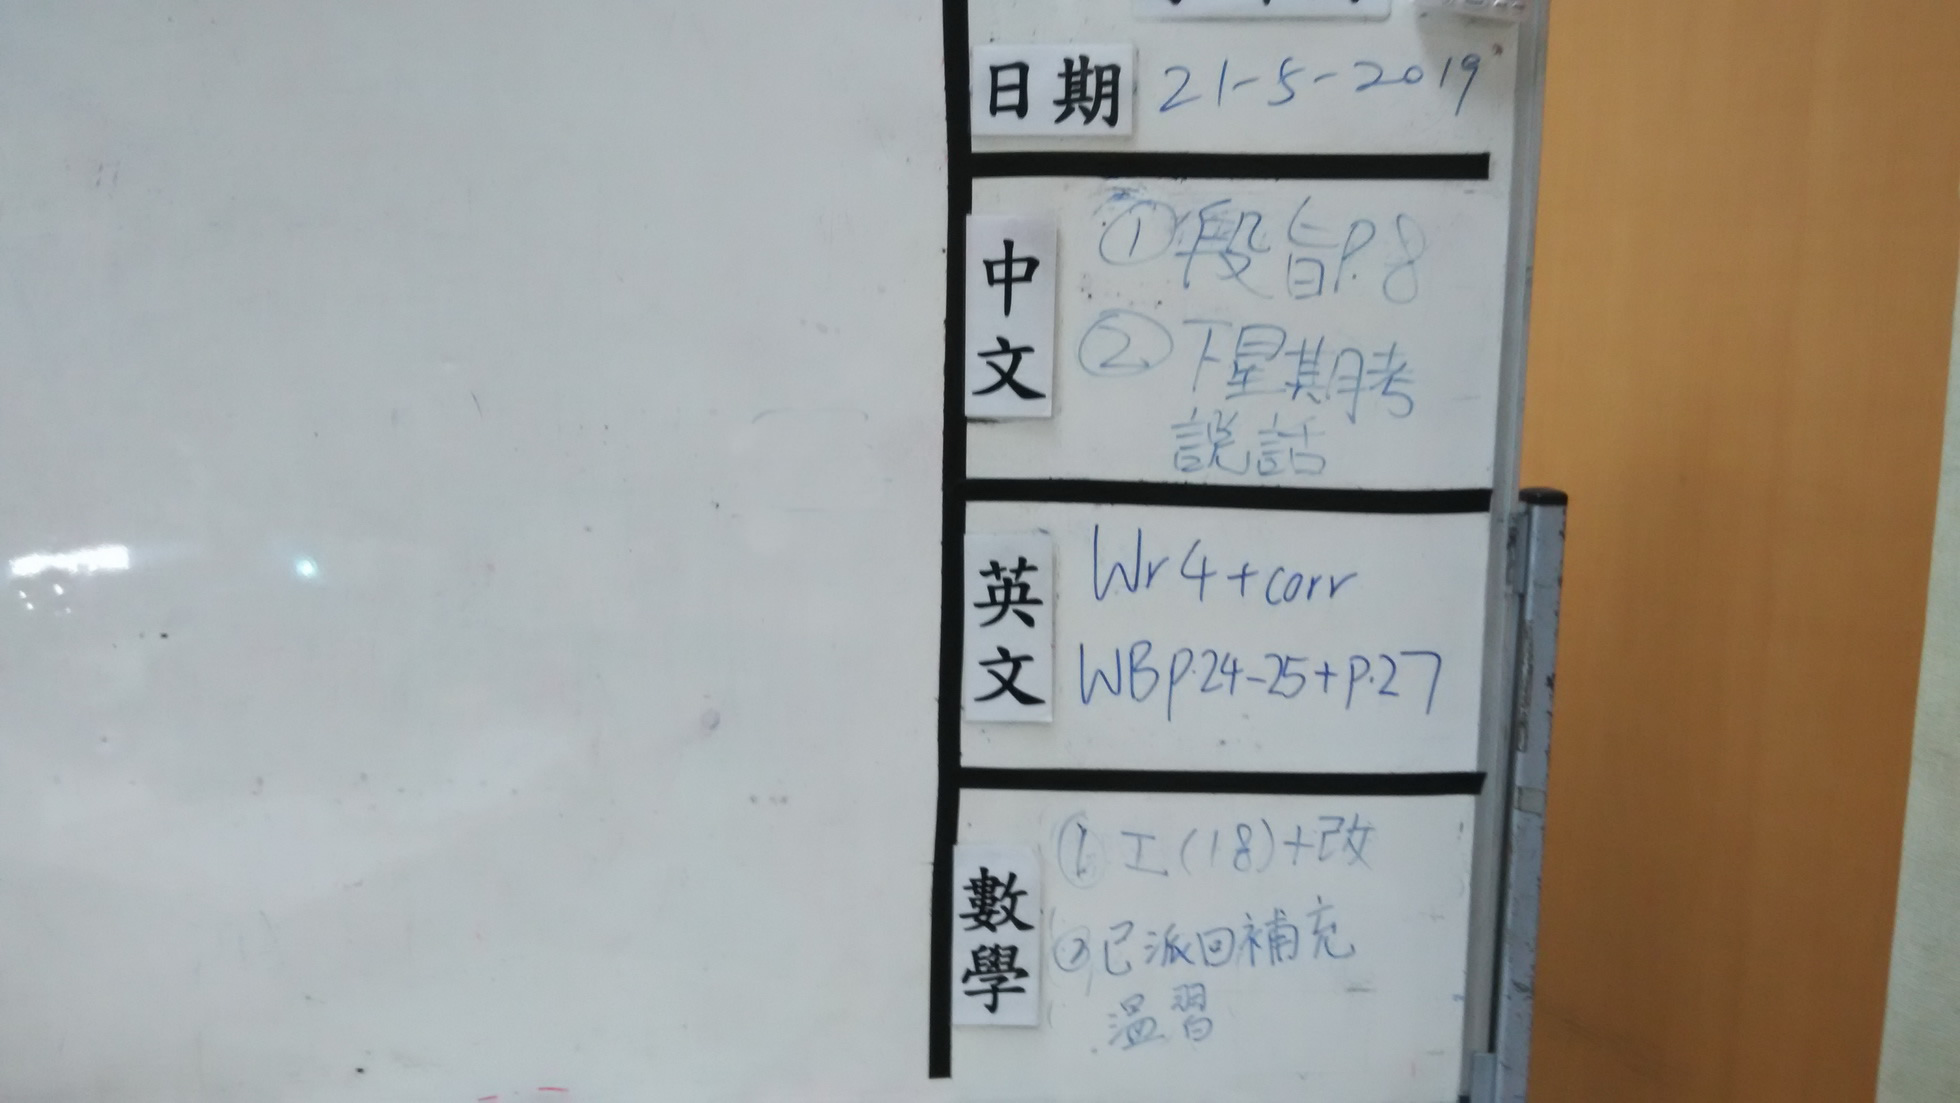 日期 21-5-2019
中文
①段旨P.8
②下星期考
說話
英文
Wr 4 + corr
WB p.24-25 + p.27
數學
①工(18)+改
②已派回補充
溫習